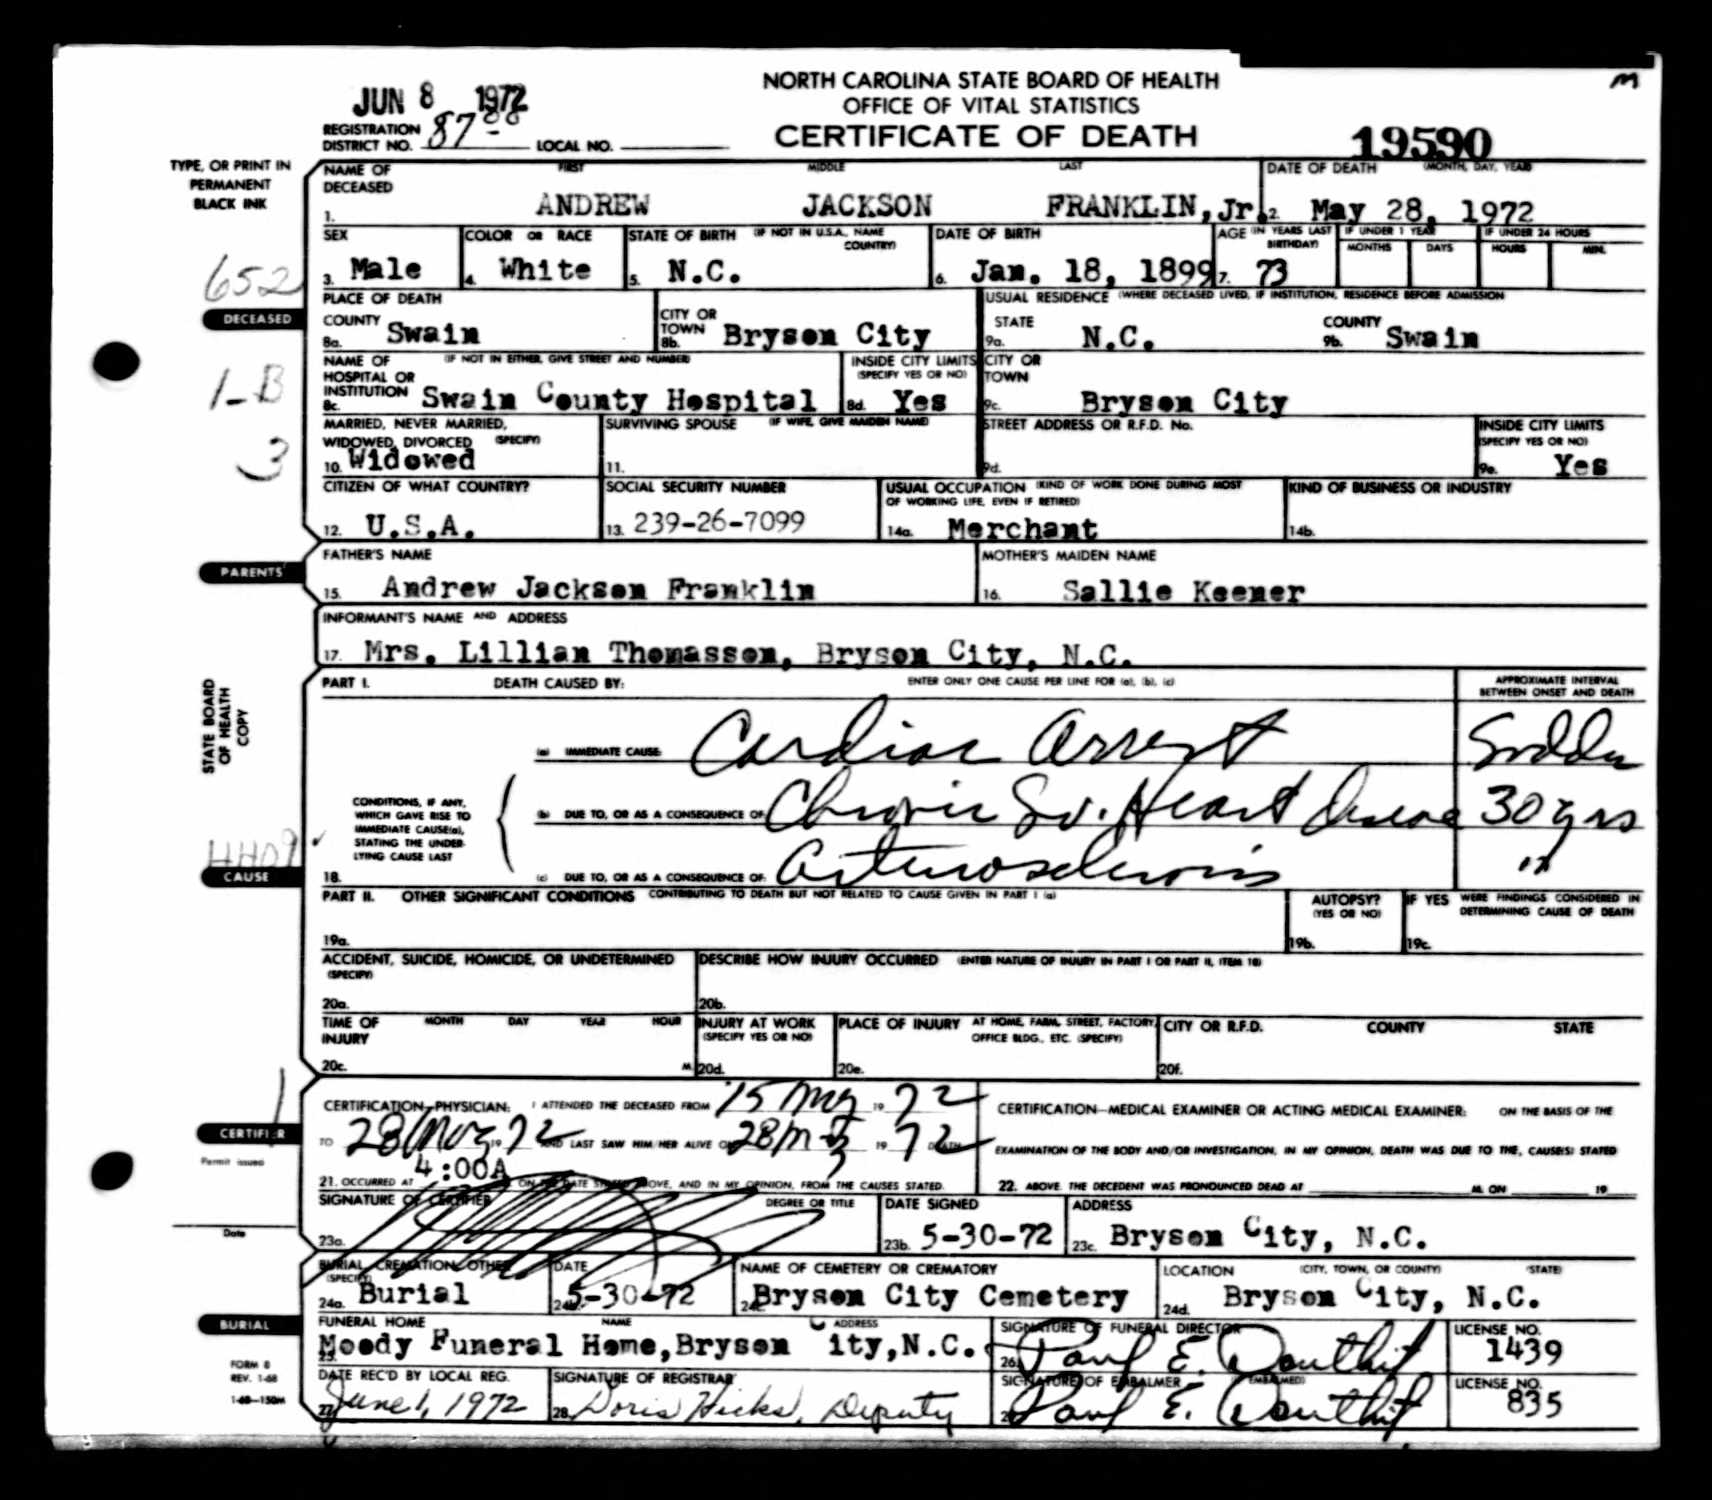 M
JUN 8 1972
NORTH CAROLINA STATE BOARD OF HEALTH
OFFICE OF VITAL STATISTICS
CERTIFICATE OF DEATH
REGISTRATION DISTRICT NO. 87 LOCAL NO.
19590
TYPE, OR PRINT IN
PERMANENT
BLACK INK
NAME OF DECEASED FIRST MIDDLE LAST DATE OF DEATH (MONTH, DAY, YEAR)
1. ANDREW JACKSON FRANKLIN, Jr. 2. May 28, 1972
SEX COLOR OR RACE STATE OF BIRTH (IF NOT IN U.S.A., NAME COUNTRY) DATE OF BIRTH AGE (IN YEARS LAST BIRTHDAY) IF UNDER 1 YEAR IF UNDER 24 HOURS
MONTHS DAYS HOURS MIN.
3. Male 4. White 5. N.C. 6. Jan. 18, 1899 7. 73
652
DECEASED
PLACE OF DEATH USUAL RESIDENCE (WHERE DECEASED LIVED, IF INSTITUTION, RESIDENCE BEFORE ADMISSION
COUNTY 8a. Swain CITY OR TOWN 8b. Bryson City STATE 9a. N.C. COUNTY 9b. Swain
NAME OF HOSPITAL OR INSTITUTION (IF NOT IN EITHER, GIVE STREET AND NUMBER) INSIDE CITY LIMITS (SPECIFY YES OR NO) CITY OR TOWN
8c. Swain County Hospital 8d. Yes 9c. Bryson City
1-B
3
MARRIED, NEVER MARRIED, WIDOWED, DIVORCED (SPECIFY) SURVIVING SPOUSE (IF WIFE, GIVE MAIDEN NAME) STREET ADDRESS OR R.F.D. No. INSIDE CITY LIMITS (SPECIFY YES OR NO)
10. Widowed 11. 9d. 9e. Yes
CITIZEN OF WHAT COUNTRY? SOCIAL SECURITY NUMBER USUAL OCCUPATION (KIND OF WORK DONE DURING MOST OF WORKING LIFE, EVEN IF RETIRED) KIND OF BUSINESS OR INDUSTRY
12. U.S.A. 13. 239-26-7099 14a. Merchant 14b.
PARENTS
FATHER'S NAME MOTHER'S MAIDEN NAME
15. Andrew Jackson Franklin 16. Sallie Keener
INFORMANT'S NAME AND ADDRESS
17. Mrs. Lillian Thomasson, Bryson City, N.C.
STATE BOARD
OF HEALTH
COPY
PART I. DEATH CAUSED BY: ENTER ONLY ONE CAUSE PER LINE FOR (a), (b), (c) APPROXIMATE INTERVAL BETWEEN ONSET AND DEATH
(a) IMMEDIATE CAUSE: Cardiac Arrest Sudden
CONDITIONS, IF ANY,
WHICH GAVE RISE TO
IMMEDIATE CAUSE(a),
STATING THE UNDER-
LYING CAUSE LAST
(b) DUE TO, OR AS A CONSEQUENCE OF: Chronic Heart Disease 30 yrs
18. (c) DUE TO, OR AS A CONSEQUENCE OF: Arteriosclerosis "
CAUSE
PART II. OTHER SIGNIFICANT CONDITIONS CONTRIBUTING TO DEATH BUT NOT RELATED TO CAUSE GIVEN IN PART I (a) AUTOPSY? (YES OR NO) IF YES WERE FINDINGS CONSIDERED IN DETERMINING CAUSE OF DEATH
19a. 19b. 19c.
ACCIDENT, SUICIDE, HOMICIDE, OR UNDETERMINED (SPECIFY) DESCRIBE HOW INJURY OCCURRED (ENTER NATURE OF INJURY IN PART I OR PART II, ITEM 18)
20a. 20b.
TIME OF INJURY MONTH DAY YEAR HOUR INJURY AT WORK (SPECIFY YES OR NO) PLACE OF INJURY AT HOME, FARM, STREET, FACTORY, OFFICE BLDG., ETC. (SPECIFY) CITY OR R.F.D. COUNTY STATE
20c. M. 20d. 20e. 20f.
CERTIFICATION—PHYSICIAN: I ATTENDED THE DECEASED FROM 15 May 19 72 CERTIFICATION—MEDICAL EXAMINER OR ACTING MEDICAL EXAMINER: ON THE BASIS OF THE
TO 28 May 19 72 AND LAST SAW HIM/HER ALIVE ON 28 May 19 72 DEATH EXAMINATION OF THE BODY AND/OR INVESTIGATION, IN MY OPINION, DEATH WAS DUE TO THE, CAUSE(S) STATED
21. OCCURRED AT 4:00A ON THE DATE STATED ABOVE, AND IN MY OPINION, FROM THE CAUSES STATED. 22. ABOVE. THE DECEDENT WAS PRONOUNCED DEAD AT M. ON 19
CERTIFIER
Permit issued
Date
SIGNATURE OF CERTIFIER DEGREE OR TITLE DATE SIGNED ADDRESS
23a. 23b. 5-30-72 23c. Bryson City, N.C.
BURIAL, CREMATION, OTHER (SPECIFY) DATE NAME OF CEMETERY OR CREMATORY LOCATION (CITY, TOWN, OR COUNTY) (STATE)
24a. Burial 24b. 5-30-72 24c. Bryson City Cemetery 24d. Bryson City, N.C.
BURIAL
FUNERAL HOME NAME ADDRESS SIGNATURE OF FUNERAL DIRECTOR LICENSE NO.
25. Moody Funeral Home, Bryson City, N.C. 26. Paul E. Douthit 1439
FORM 8
REV. 1-68
1-68—150M
DATE REC'D BY LOCAL REG. SIGNATURE OF REGISTRAR SIGNATURE OF EMBALMER (IF EMBALMED) LICENSE NO.
27. June 1, 1972 28. Doris Hicks, Deputy Paul E. Douthit 835